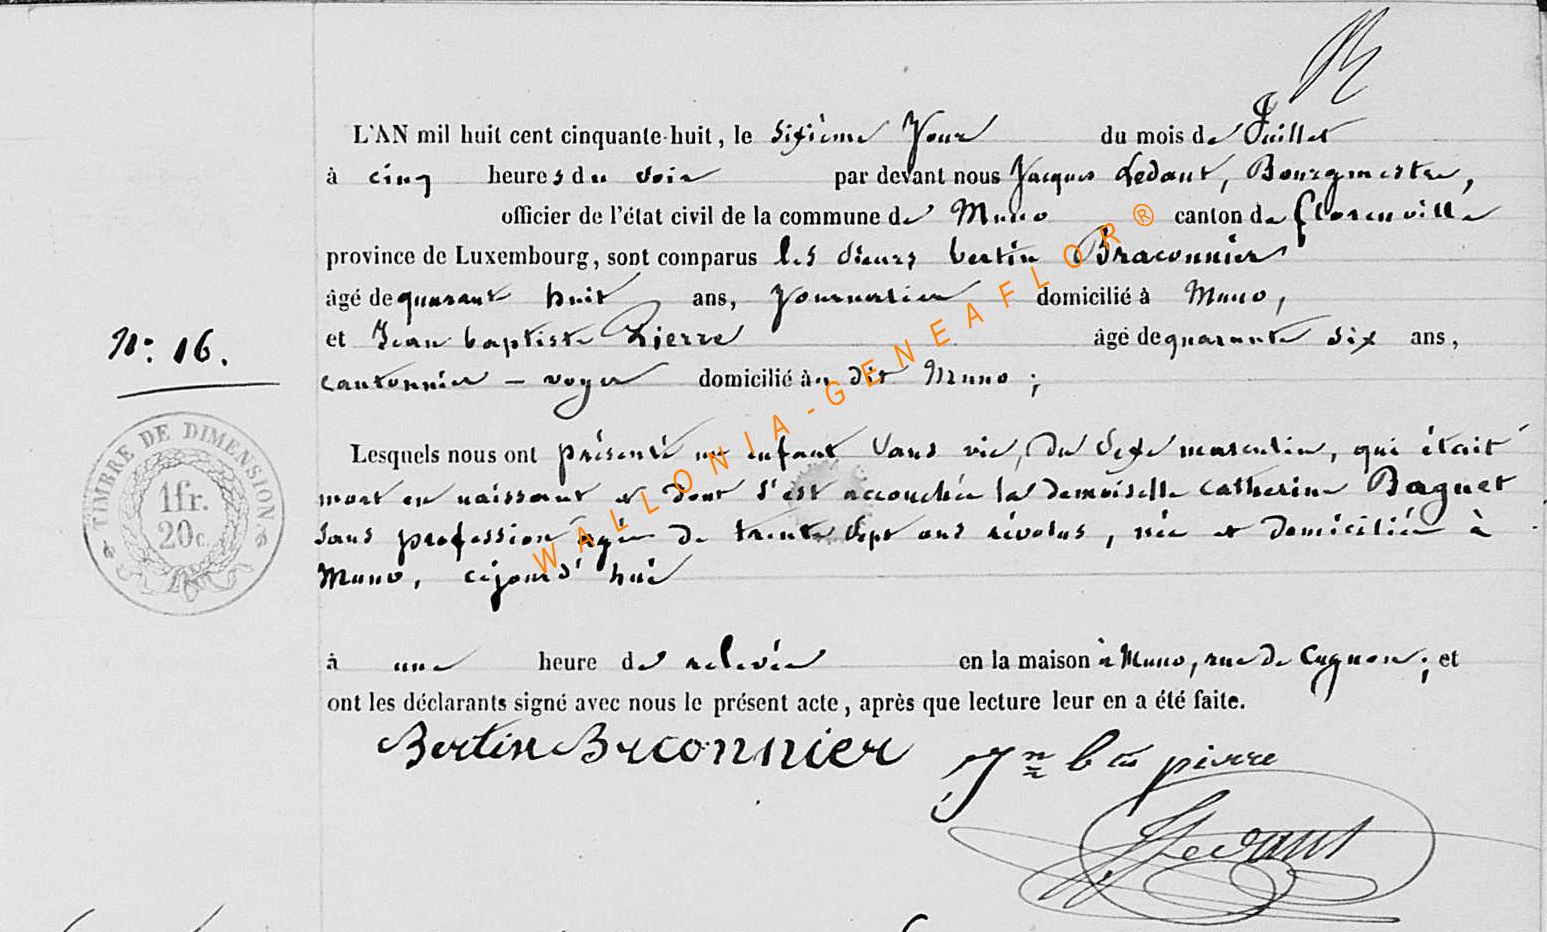 L'AN mil huit cent cinquante-huit, le sixième jour du mois de Juillet
à cinq heures du soir par devant nous Jacques Ledant, Bourgmestre,
officier de l'état civil de la commune de Muno canton de florenville
province de Luxembourg, sont comparus les sieurs bertin Braconnier
âgé de quarante huit ans, journalier domicilié à Muno,
et Jean baptiste Pierre âgé de quarante six ans,
N.° 16.
cantonnier - voyer domicilié à dit Muno ;
Lesquels nous ont présenté un enfant sans vie, du sexe masculin, qui était
mort en naissant et dont s'est accouchée la demoiselle catherine Baguet
sans profession âgée de trente sept ans révolus, née et domiciliée à
Muno, cejourd'hui
TIMBRE DE DIMENSION.
1fr.
20c.
à une heure de relevée en la maison à Muno, rue de Cugnon ; et
ont les déclarants signé avec nous le présent acte, après que lecture leur en a été faite.
Bertin Brconnier Jn bte pierre
JLedant
WALLONIA-GENEAFLOR®